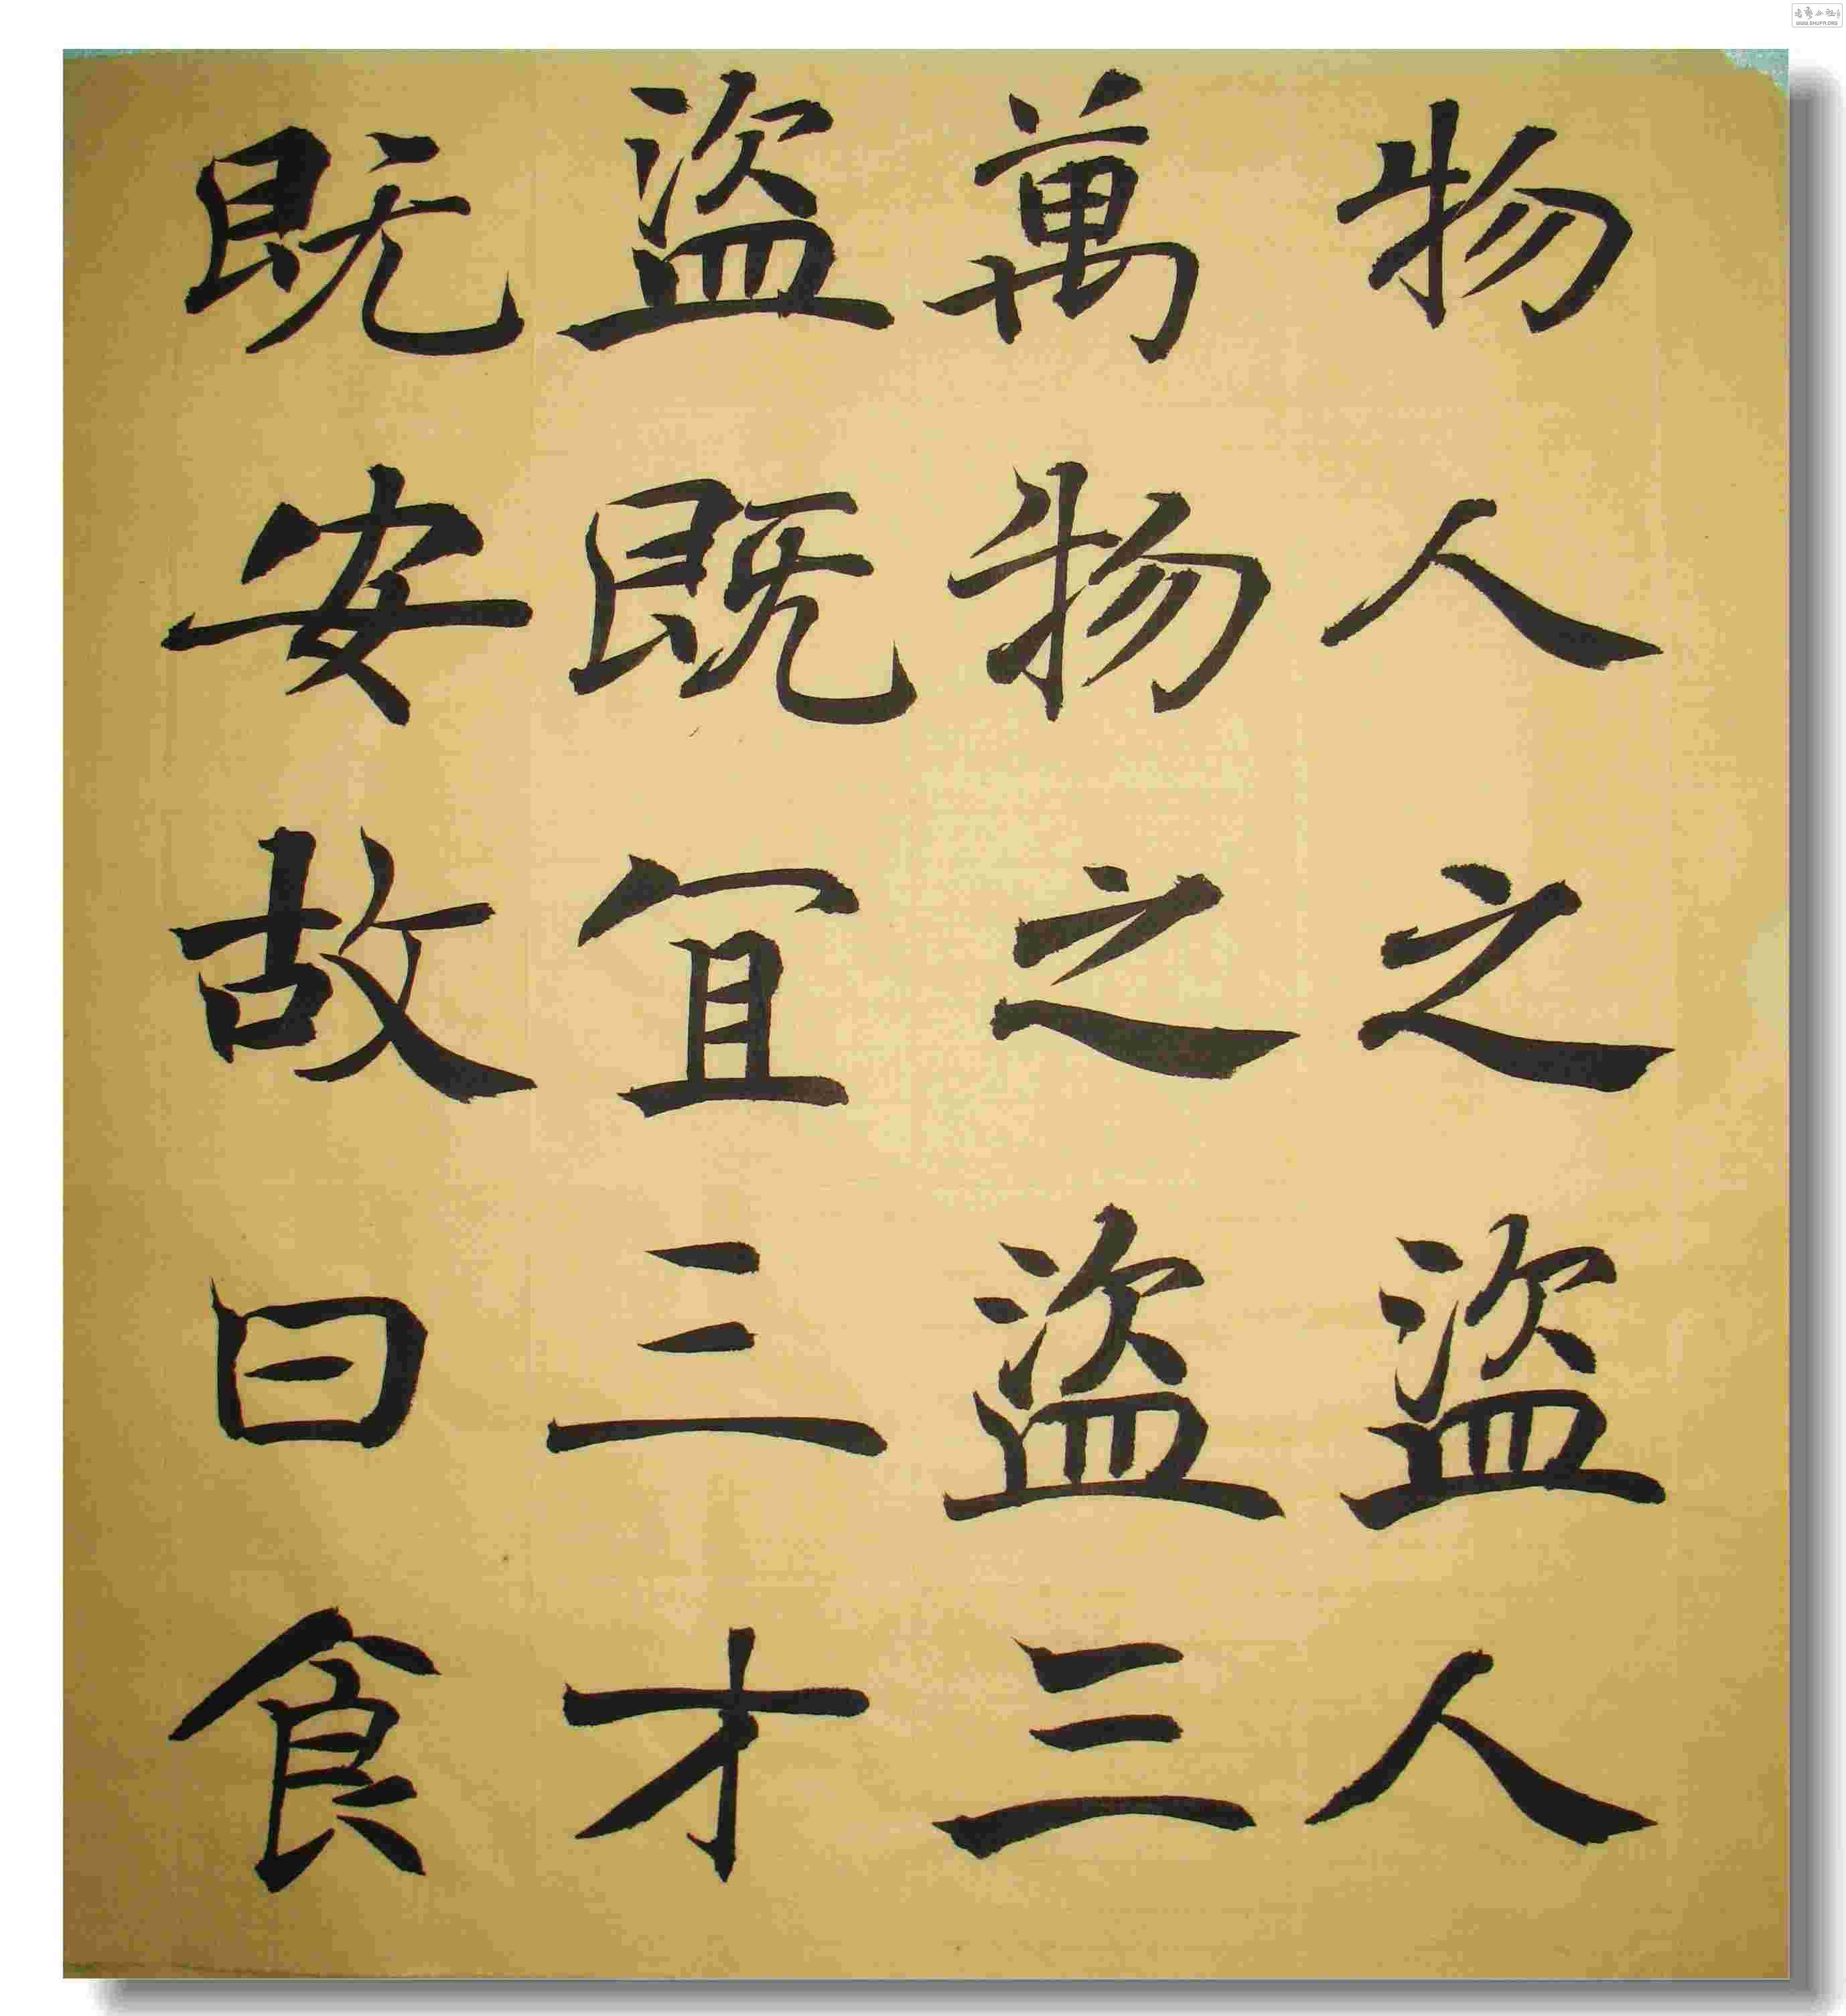 物人之盜人
萬物之盜三
盜既宜三才
既安故曰食
WWW.SHUFA.ORG